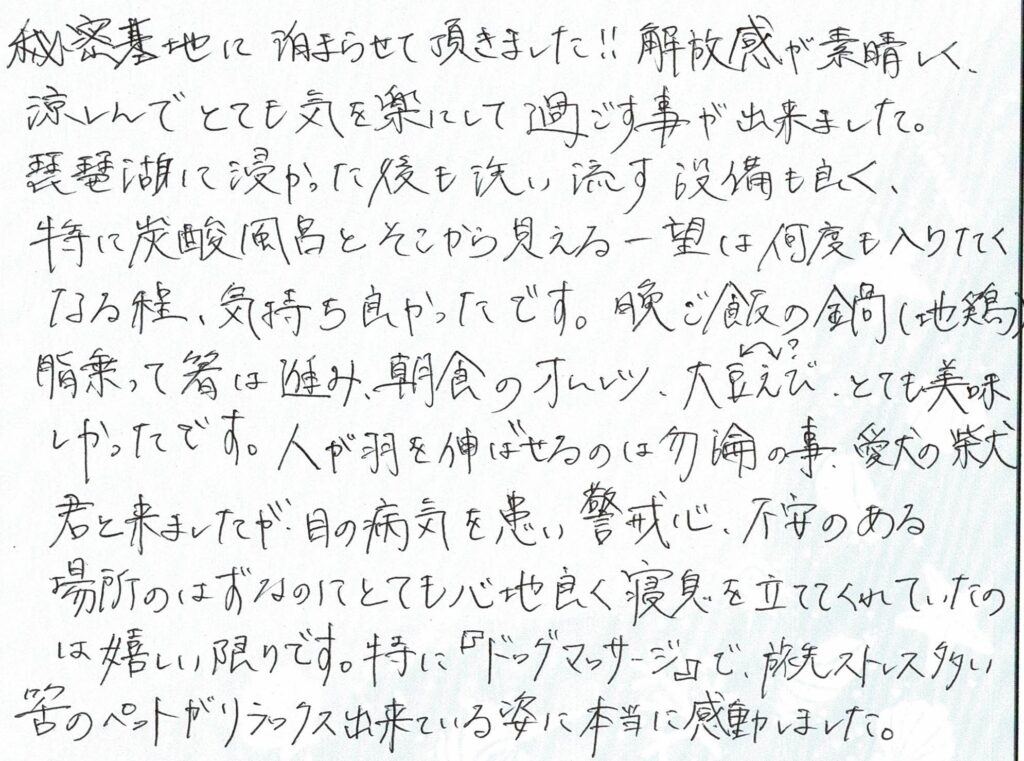 秘密基地に泊まらせて頂きました!! 解放感が素晴しく、
涼しんでとても気を楽にして過ごす事が出来ました。
琵琶湖に浸かった後も洗い流す設備も良く、
特に炭酸風呂とそこから見える一望は何度も入りたく
なる程、気持ち良かったです。晩ご飯の鍋(地鶏)
脂乗って箸は進み、朝食のオムレツ、大豆えび、とても美味
しかったです。人が羽を伸ばせるのは勿論の事、愛犬の柴犬
君と来ましたが、目の病気を患い警戒心、不安のある
場所のはずなのにとても心地良く寝息を立ててくれていたの
は嬉しい限りです。特に『ドッグマッサージ』で、旅先ストレス多い
筈のペットがリラックス出来ている姿に本当に感動しました。